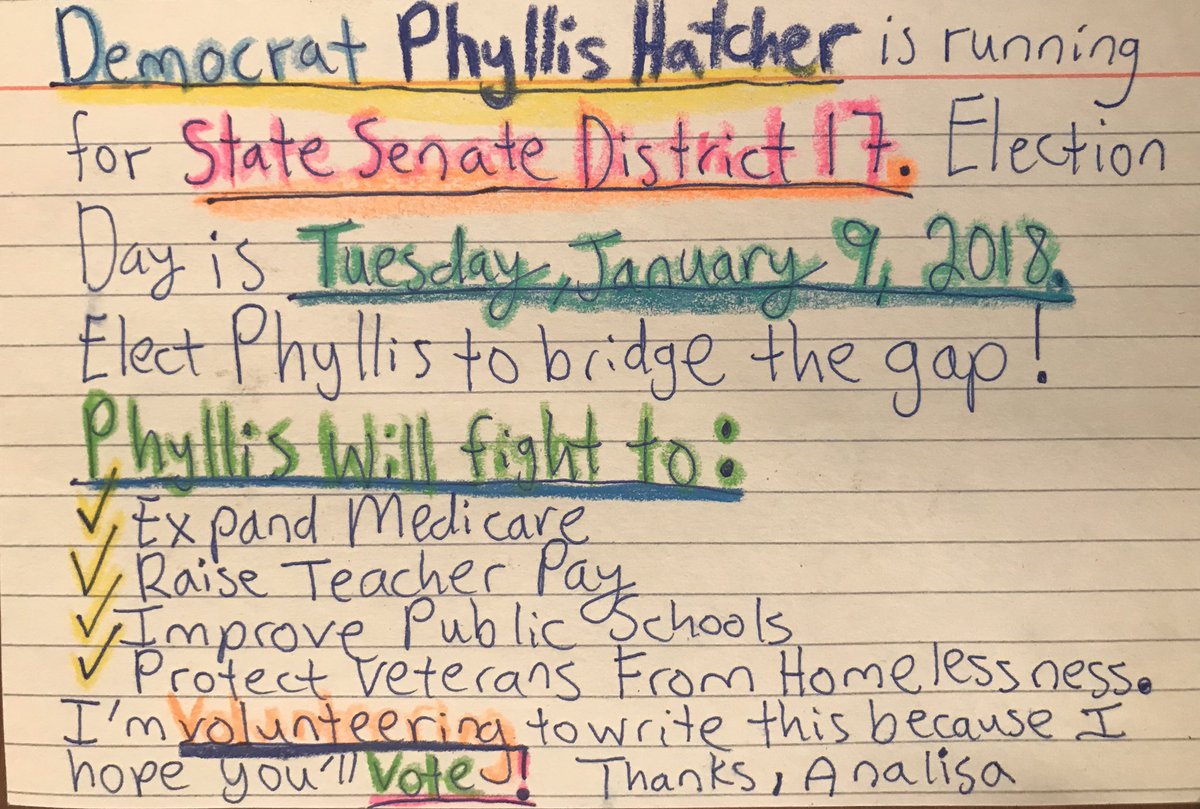 Democrat Phyllis Hatcher is running
for State Senate District 17. Election
Day is Tuesday, January 9, 2018.
Elect Phyllis to bridge the gap!
Phyllis Will fight to:
✓ Expand Medicare
✓ Raise Teacher Pay
✓ Improve Public Schools
✓ Protect Veterans From Homelessness.
I'm volunteering to write this because I
hope you'll Vote! Thanks, Analisa